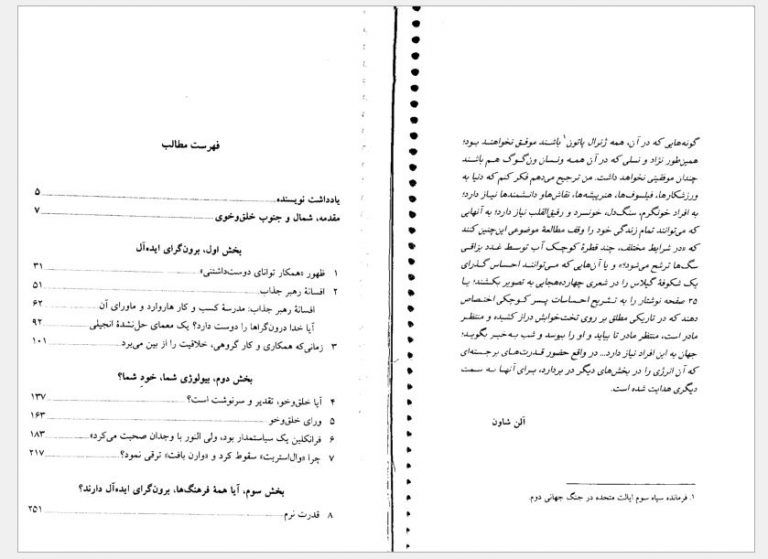 گونه‌هایی که در آن، همه ژنرال پاتون۱ باشند موفق نخواهند بود؛
همین‌طور نژاد و نسلی که در آن همه ونسان ون‌گوگ هم باشند
چندان موفقیتی نخواهد داشت. من ترجیح می‌دهم فکر کنم که دنیا به
ورزشکارها، فیلسوف‌ها، هنرپیشه‌ها، نقاش‌ها و دانشمندها نیاز دارد؛
به افراد خونگرم، سنگ‌دل، خونسرد و رقیق‌القلب نیاز دارد؛ به آنهایی
که می‌توانند تمام زندگی خود را وقف مطالعهٔ موضوعی این‌چنین کنند
که «در شرایط مختلف، چند قطرهٔ کوچک آب توسط غدد بزاقی
سگ‌ها ترشح می‌شود؛» و یا آن‌هایی که می‌توانند احساس گذرای
یک شکوفهٔ گیلاس را در شعری چهارده‌هجایی به تصویر بکشند؛ یا
۲۵ صفحه نوشتار را به تشریح احساسات پسر کوچکی اختصاص
دهند که در تاریکی مطلق بر روی تخت‌خوابش دراز کشیده و منتظر
مادر است، منتظر مادر تا بیاید و او را ببوسد و شب به‌خیر بگوید؛
جهان به این افراد نیاز دارد... در واقع حضور قدرت‌های برجسته‌ای
که آن انرژی را در بخش‌های دیگر در بردارد، برای آنها به سمت
دیگری هدایت شده است.
آلن شاون
۱. فرمانده سپاه سوم ایالت متحده در جنگ جهانی دوم.
فهرست مطالب
یادداشت نویسنده ۵
مقدمه، شمال و جنوب خلق‌وخوی ۷
بخش اول، برون‌گرای ایده‌آل
۱ ظهور «همکار توانای دوست‌داشتنی» ۳۱
۲ افسانهٔ رهبر جذاب ۵۱
افسانهٔ رهبر جذاب: مدرسهٔ کسب و کار هاروارد و ماورای آن ۶۲
آیا خدا درون‌گراها را دوست دارد؟ یک معمای حل‌نشدهٔ انجیلی ۹۲
۳ زمانی‌که همکاری و کار گروهی، خلاقیت را از بین می‌برد ۱۰۱
بخش دوم، بیولوژی شما، خود شما؟
۴ آیا خلق‌وخو، تقدیر و سرنوشت است؟ ۱۳۷
۵ ورای خلق‌وخو ۱۶۳
۶ فرانکلین یک سیاستمدار بود، ولی النور با وجدان صحبت می‌کرد» ۱۸۳
۷ چرا «وال‌استریت» سقوط کرد و «وارن بافت» ترقی نمود؟ ۲۱۷
بخش سوم، آیا همهٔ فرهنگ‌ها، برون‌گرای ایده‌آل دارند؟
۸ قدرت نرم ۲۵۱